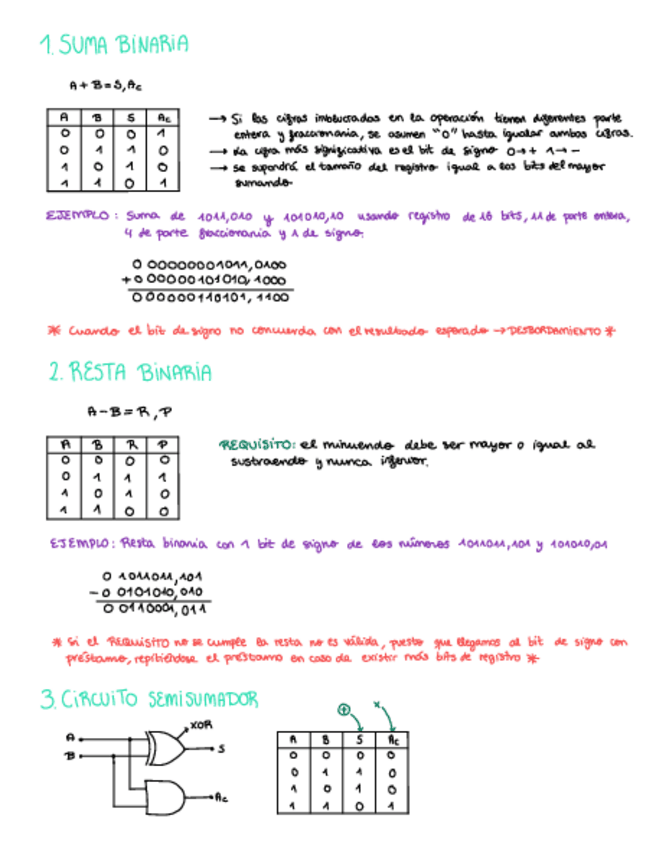 1. SUMA BINARIA
A + B = S, Ac
A B S Ac
0 0 0 1
0 1 1 0
1 0 1 0
1 1 0 1
→ Si las cifras involucradas en la operación tienen diferentes parte
entera y fraccionaria, se asumen "0" hasta igualar ambas cifras.
→ La cifra más significativa es el bit de signo 0→+ 1→-
→ se supondrá el tamaño del registro igual a los bits del mayor
sumando
EJEMPLO: Suma de 1011,010 y 101010,10 usando registro de 16 bits, 11 de parte entera,
4 de parte fraccionaria y 1 de signo.
0 00000001011,0100
+0 00000101010,1000
0 00000110101,1100
* Cuando el bit de signo no concuerda con el resultado esperado → DESBORDAMIENTO *
2. RESTA BINARIA
A - B = R, P
A B R P
0 0 0 0
0 1 1 1
1 0 1 0
1 1 0 0
REQUISITO: el minuendo debe ser mayor o igual al
sustraendo y nunca inferior.
EJEMPLO: Resta binaria con 1 bit de signo de los números 1011011,101 y 101010,01
0 1011011,101
-0 0101010,010
0 0110001,011
* Si el REQUISITO no se cumple la resta no es válida, puesto que llegamos al bit de signo con
préstamo, repitiéndose el préstamo en caso da existir más bits de registro *
3. CIRCUITO SEMISUMADOR
A
B
XOR
S
Ac
⊕ x
A B S Ac
0 0 0 0
0 1 1 0
1 0 1 0
1 1 0 1